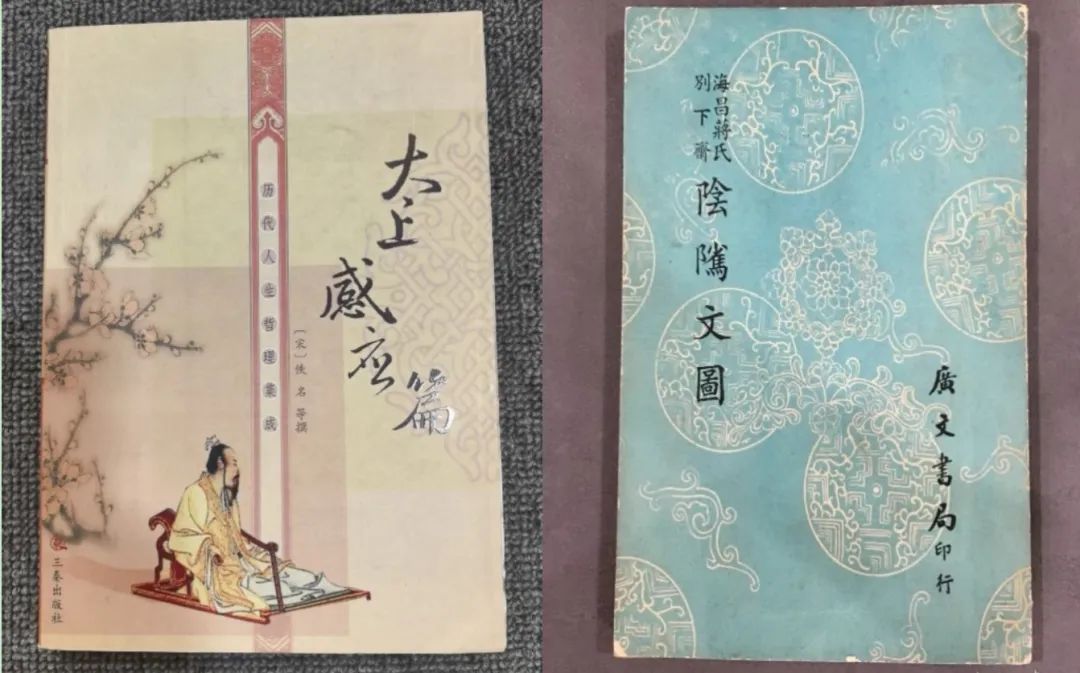 太上
感应
篇
历代人生哲理集成
〔宋〕佚名等撰
三秦出版社
海昌蔣氏
別下齋
陰騭文圖
廣文書局印行